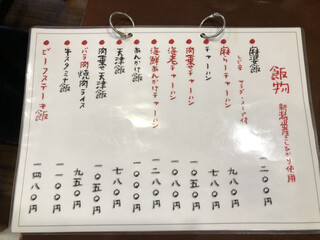 飯物
新潟県産こしひかり使用
麻婆飯 一二〇〇円
サラダ・スープ付
麻らーチャーハン 九八〇円
チャーハン 七八〇円
肉葉チャーハン 一〇〇〇円
海老チャーハン 一〇〇〇円
海鮮あんかけチャーハン 一二八〇円
あんかけ飯 一〇〇〇円
天津飯 七八〇円
肉葉天津飯 一〇五〇円
バラ肉焼肉ライス 九五〇円
牛スタミナ飯 一一〇〇円
ビーフステーキ飯 一四八〇円